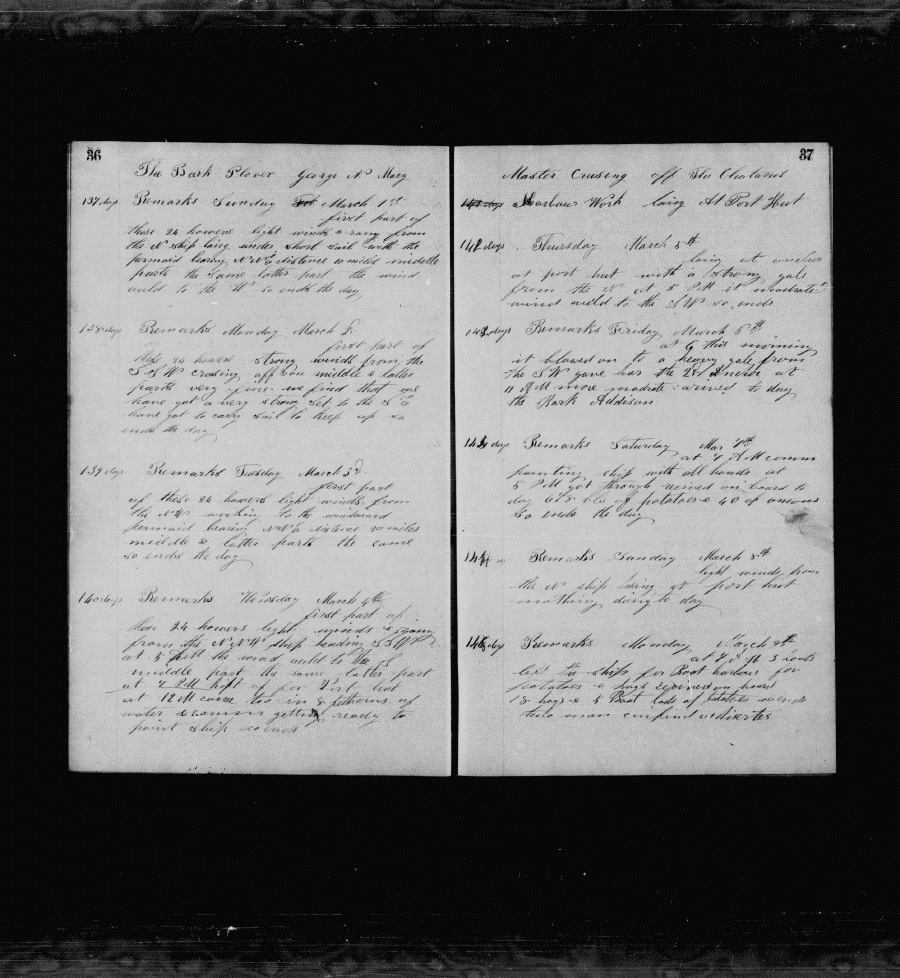 36
The Bark Plover George N Macy
137 days Remarks Sunday March 1st
first part of
these 24 howers light winds & rany from
the N ship laing under short sail with the
permaid bearing N N E distence 10 miles middle
parts the same latter part the wind
auld to the W so ends the day
138 days Remarks Monday March 2
first part of
these 24 howers strong winds from the
S S W crusing off & on middle & latter
parts very fine we find that we
have got a very strong set to the S E
have got to carry sail to keep up so
ends the day
139 days Remarks Tusday March 3d
first part
of these 24 howers light winds from
the N W working to the windward
permaid bearing N N E distence 20 miles
middle & latter parts the same
so ends the day
140 days Remarks Wensday March 4th
first part of
these 24 howers light winds & rany
from the N N W ship heading
at 5 the wind auld to the
middle part the same latter part
at 4 PM kept of for Port hut
at 12 M came too in 8 fathoms of
water & comm getting ready to
paint ship so ends
37
Master Crusing off The Chatams
Harbour Work laing At Port Hut
142 days Thursday March 5th
laing at anchor
at port hut with a strong gale
from the N at 5 PM it modrated
winds auld to the S W so ends
days Remarks Friday March 6th
at 6 this morning
it blowed on to a heavy gale from
the S W gave her the 2d Ancor at
11 AM more modrate arived to day
the Bark Addison
days Remarks Saturday Mar 7th
at 7 AM comm
painting ship with all hands at
5 PM got through recived on board to
day bls of potatoes & 40 of onions
so ends the day
Remarks Sunday March 8th
light winds from
the N ship laing at port hut
nothing doing to day
days Remarks Monday March 9th
at 3 boats
left the ship for Boat harbour for
potatoes & hogs recived on board
13 hogs & 5 Boat lods of potatoes so ends
two man